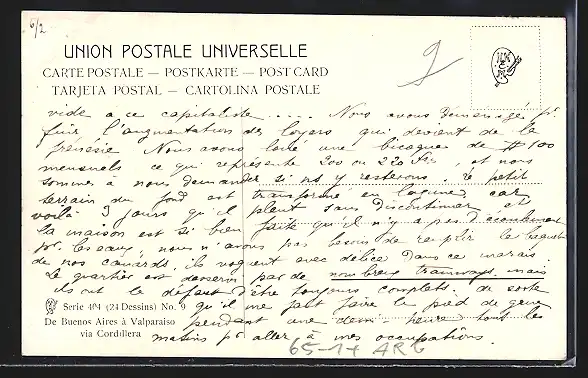 6/2
UNION POSTALE UNIVERSELLE
CARTE POSTALE — POSTKARTE — POST CARD
TARJETA POSTAL — CARTOLINA POSTALE
vide a ce capitaliste ..... Nous avons déménagé pr.
fuir l'augmentation des loyers qui devient de la
frénésie Nous avons loué une bicoque de $ 100
mensuels ce qui représente 200 ou 220 Frs, et nous
sommes à nous demander si ns y resterons. Le petit
terrain du fond est transformé en lagune car
voilà 3 jours qu'il pleut sans discontinuer et
la maison est si bien faite qu'il n'y a pas d'écoulement
pr. les eaux, nous n'avons pas besoin de remplir le baquet
de nos canards ils voguent avec délice dans ce marais.
Le quartier est desservi par de nombreux tramways mais
ils ont le défaut d'être toujours complets. de sorte
qu'il me faut faire le pied de grue
pendant une demi-heure tous les
matins pr aller à mes occupations.
Serie 404 (24 Dessins) No. 9
De Buenos Aires à Valparaiso
via Cordillera
65-17 ARG